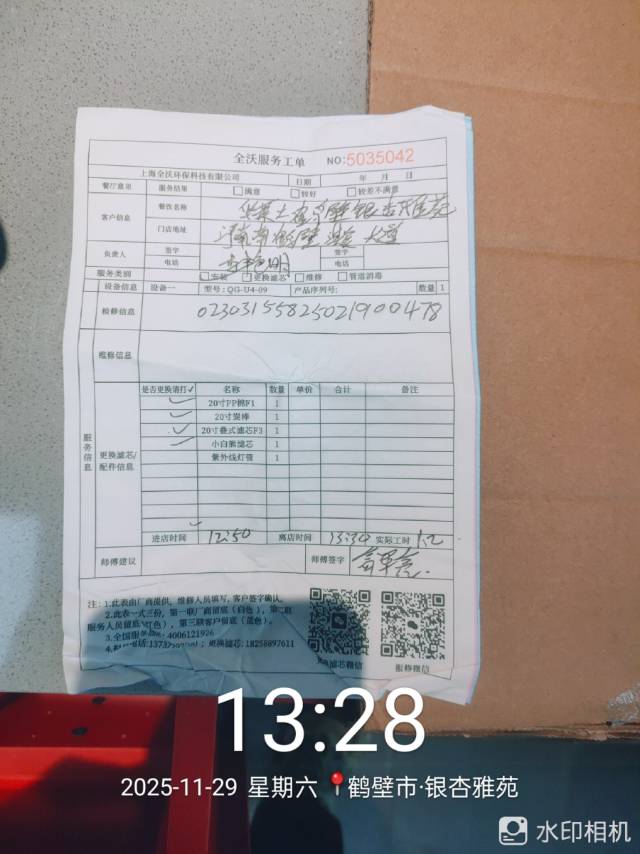 全沃服务工单 NO:5035042
上海全沃环保科技有限公司 日期 年 月 日
餐厅意见 服务结果 □满意 □较好 □较差不满意
客户信息 餐饮名称 华莱士 鹤壁银杏雅苑
门店地址 河南省鹤壁
负责人 签字 签字
电话 电话
服务类别 □安装 □更换滤芯 □维修 □管道消毒
设备信息 设备一 型号:QG-U4-09 产品序列号: 数量 1
检修信息 02303155825021900478
维修信息
服务信息
更换滤芯/配件信息
是否更换请打✓ 名称 数量 单价 合计 备注
✓ 20寸PP棉F1 1
✓ 20寸炭棒 1
✓ 20寸叠式滤芯F3 1
✓ 小白熊滤芯 1
紫外线灯管 1
进店时间 12:50 离店时间 13:30 实际工时 1.2
师傅建议 师傅签字
注:1.此表由厂商提供,维修人员填写,客户签字确认。
2.此表一式三份,第一联厂商留底(白色),第二联
服务人员留底(红色),第三联客户留底(蓝色)。
3.全国服务 4006121926
更换滤芯:18258897611
滤芯微信 报修微信
13:28
2025-11-29 星期六 鹤壁市·银杏雅苑
水印相机